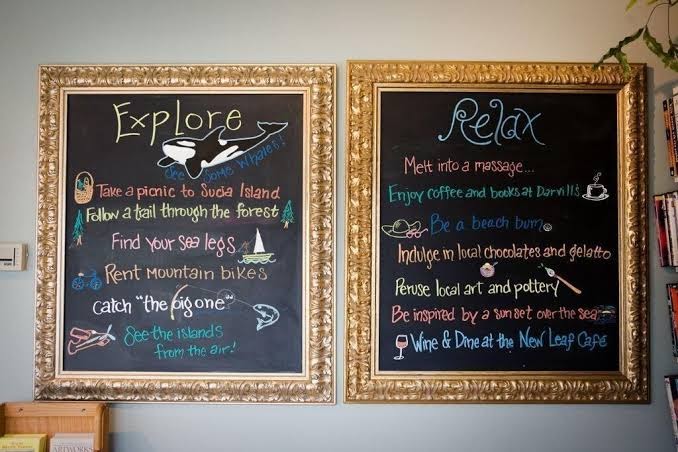 Explore
See Some Whales!
Take a picnic to Sucia Island
Follow a trail through the forest
Find your sea legs
Rent Mountain bikes
Catch "the big one"
See the islands
from the air!
Relax
Melt into a massage...
Enjoy coffee and books at Darvill's
Be a beach bum
Indulge in local chocolates and gelatto
Peruse local art and pottery
Be inspired by a sunset over the sea
Wine & Dine at the New Leaf Café
ARTWORKS